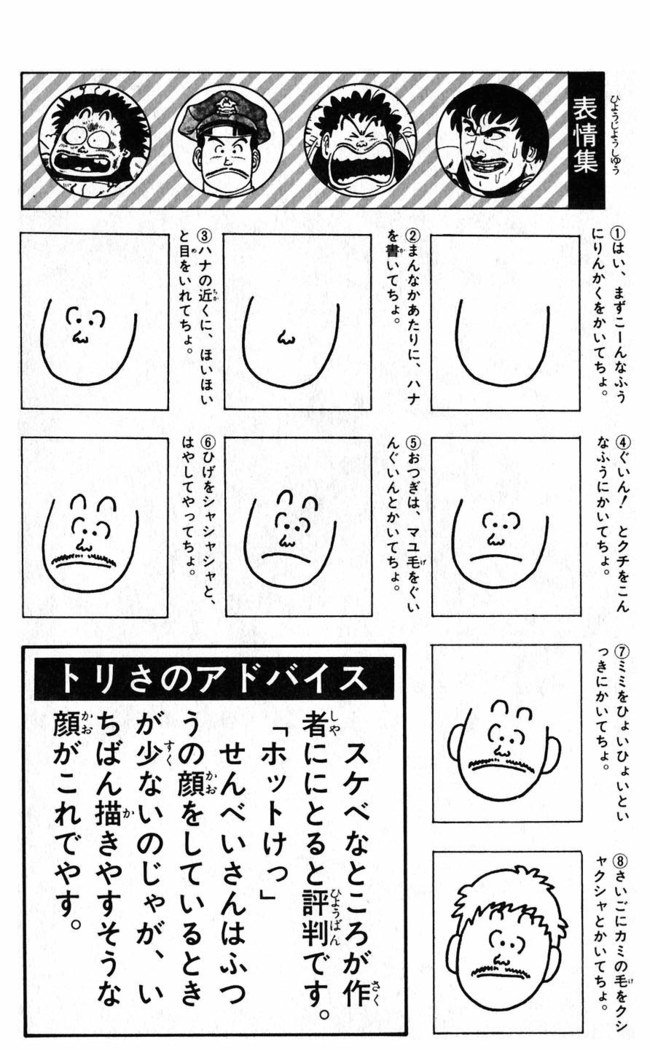 表情集
ひょうじょうしゅう
①はい、まずこーんなふう
にりんかくをかいてちょ。
②まんなかあたりに、ハナ
を書いてちょ。
か
③ハナの近くに、ほいほい
ちか
と目をいれてちょ。
め
④ぐいん！とクチをこん
なふうにかいてちょ。
⑤おつぎは、マユ毛をぐい
げ
んぐいんとかいてちょ。
⑥ひげをシャシャシャと、
はやしてやってちょ。
⑦ミミをひょいひょいとい
っきにかいてちょ。
⑧さいごにカミの毛をクシ
け
ャクシャとかいてちょ。
トリさのアドバイス
スケベなところが作
さく
者ににとると評判です。
しゃ
ひょうばん
「ホットけっ」
せんべいさんはふつ
うの顔をしているとき
かお
が少ないのじゃが、い
すく
ちばん描きやすそうな
か
顔がこれでやす。
かお